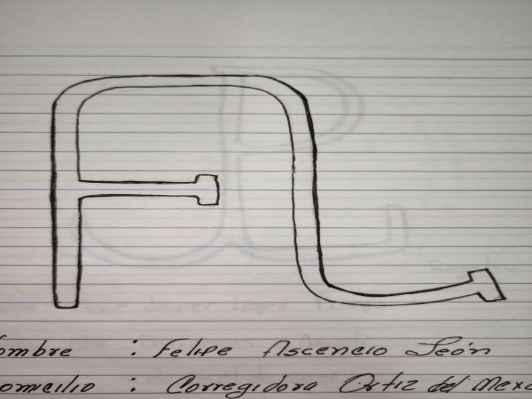 ombre : Felipe Ascencio León
omicilio : Corregidora Ortiz del Mexo